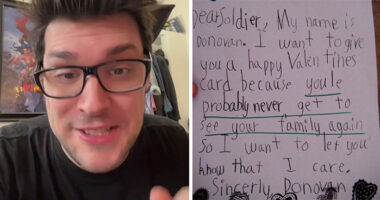 Dear Soldier, My name is
Donovan. I want to give
you a happy Valentines
card because youle
probably never get to
see your family again
So I want to let you
know that I care.
Sincerly Donovan